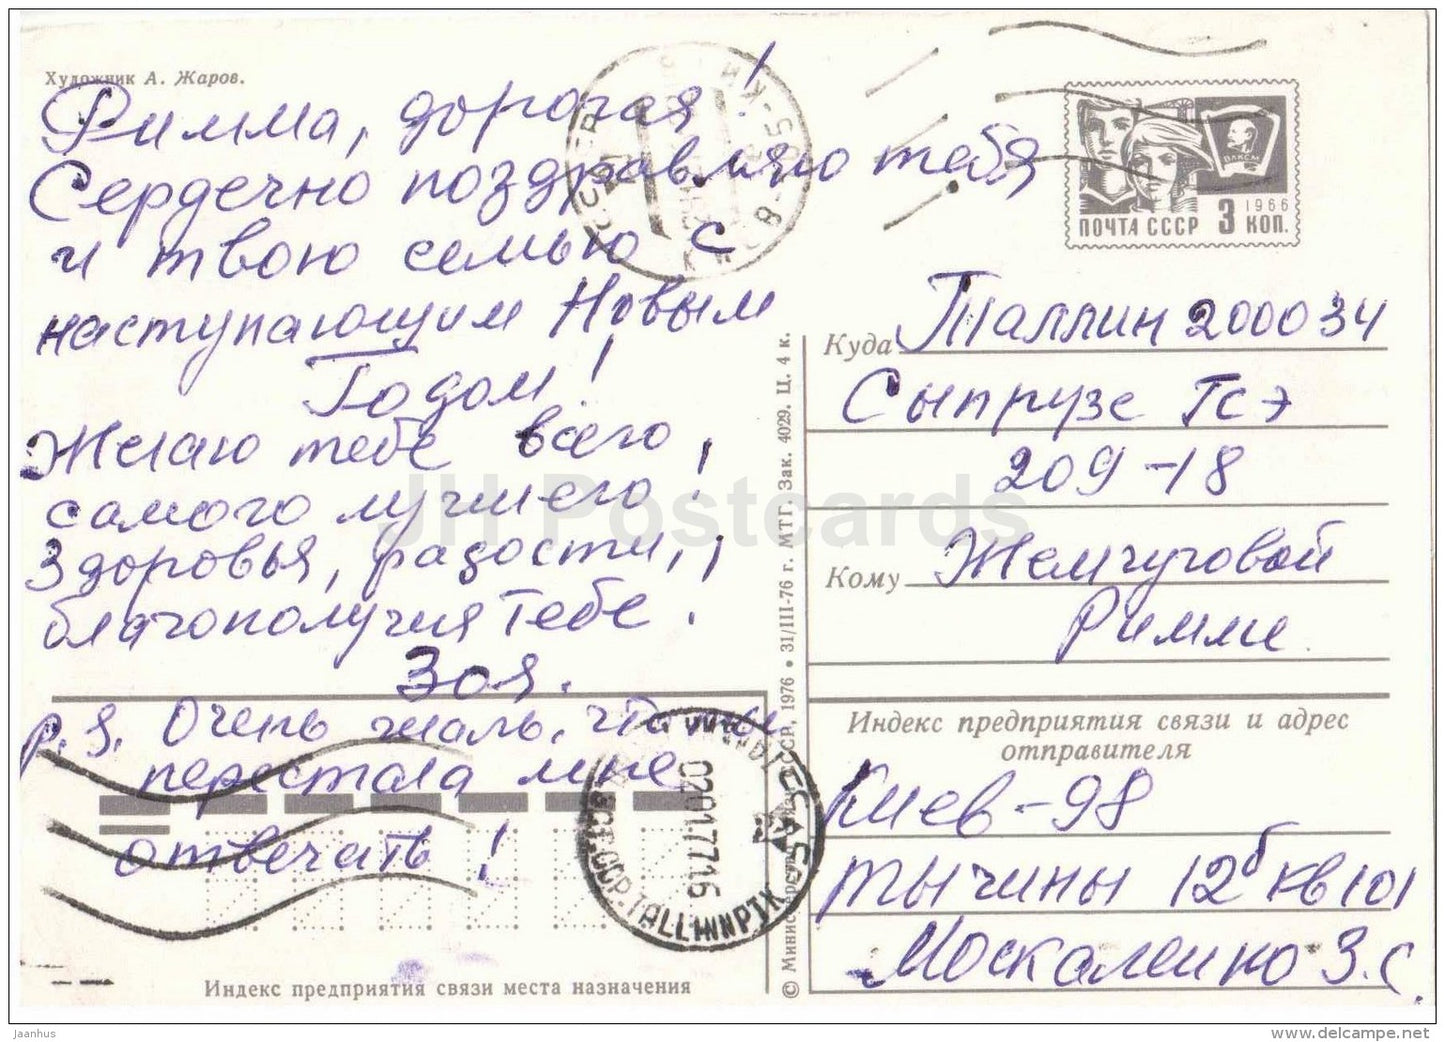 Художник А. Жаров.
Римма, дорогая!
Сердечно поздравляю тебя
и твою семью с
наступающим Новым
Годом!
Желаю тебе всего,
самого лучшего!
Здоровья, радости,
благополучия тебе!
Зоя.
P.S. Очень жаль, что ты
перестала мне
отвечать!
Индекс предприятия связи места назначения
© Министерство связи СССР, 1976 • 31/III-76 г. МТГ. Зак. 4029. Ц. 4 к.
ВЛКСМ
1966
ПОЧТА СССР 3 КОП.
Куда Таллин 200034
Сыпрузе Тсэ
209-18
Кому Жемчуговой
Римме
Индекс предприятия связи и адрес
отправителя
Киев-98
Тычины 12б кв 101
Москаленко З.С.
TALLINN PTK
02017716
JH Postcards
jaanhus
www.delcampe.net